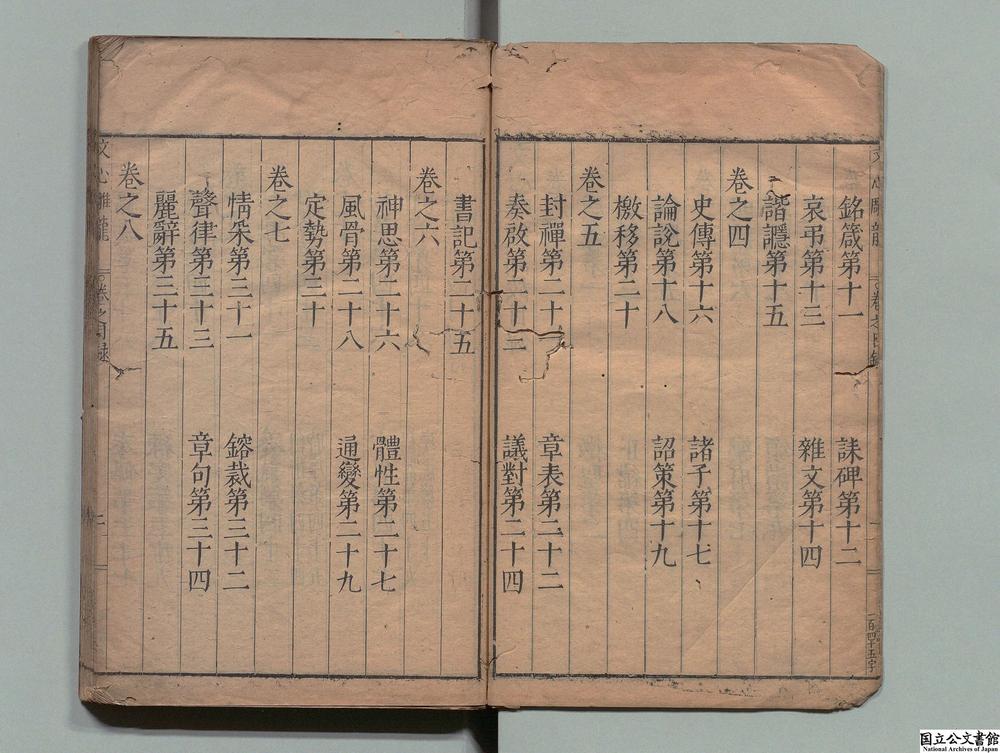 文心雕龍 卷之目錄 一 一百四十五字
銘箴第十一 誄碑第十二
哀弔第十三 雜文第十四
諧讔第十五
卷之四
史傳第十六 諸子第十七
論說第十八 詔策第十九
檄移第二十
卷之五
封禪第二十一 章表第二十二
奏啟第二十三 議對第二十四
書記第二十五
卷之六
神思第二十六 體性第二十七
風骨第二十八 通變第二十九
定勢第三十
卷之七
情采第三十一 鎔裁第三十二
聲律第三十三 章句第三十四
麗辭第三十五
卷之八
文心雕龍 卷之目錄 二
国立公文書館
National Archives of Japan